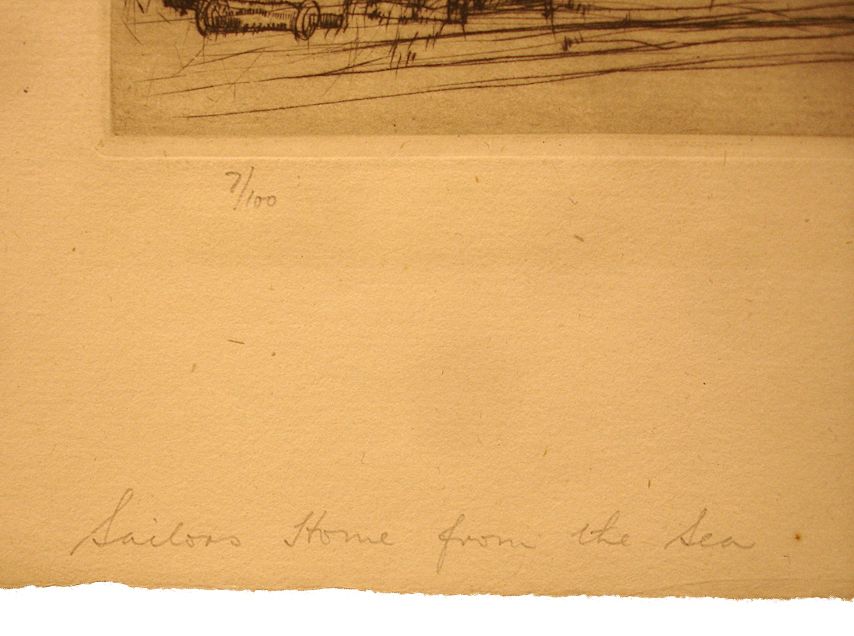 7/100
Sailors Home from the Sea